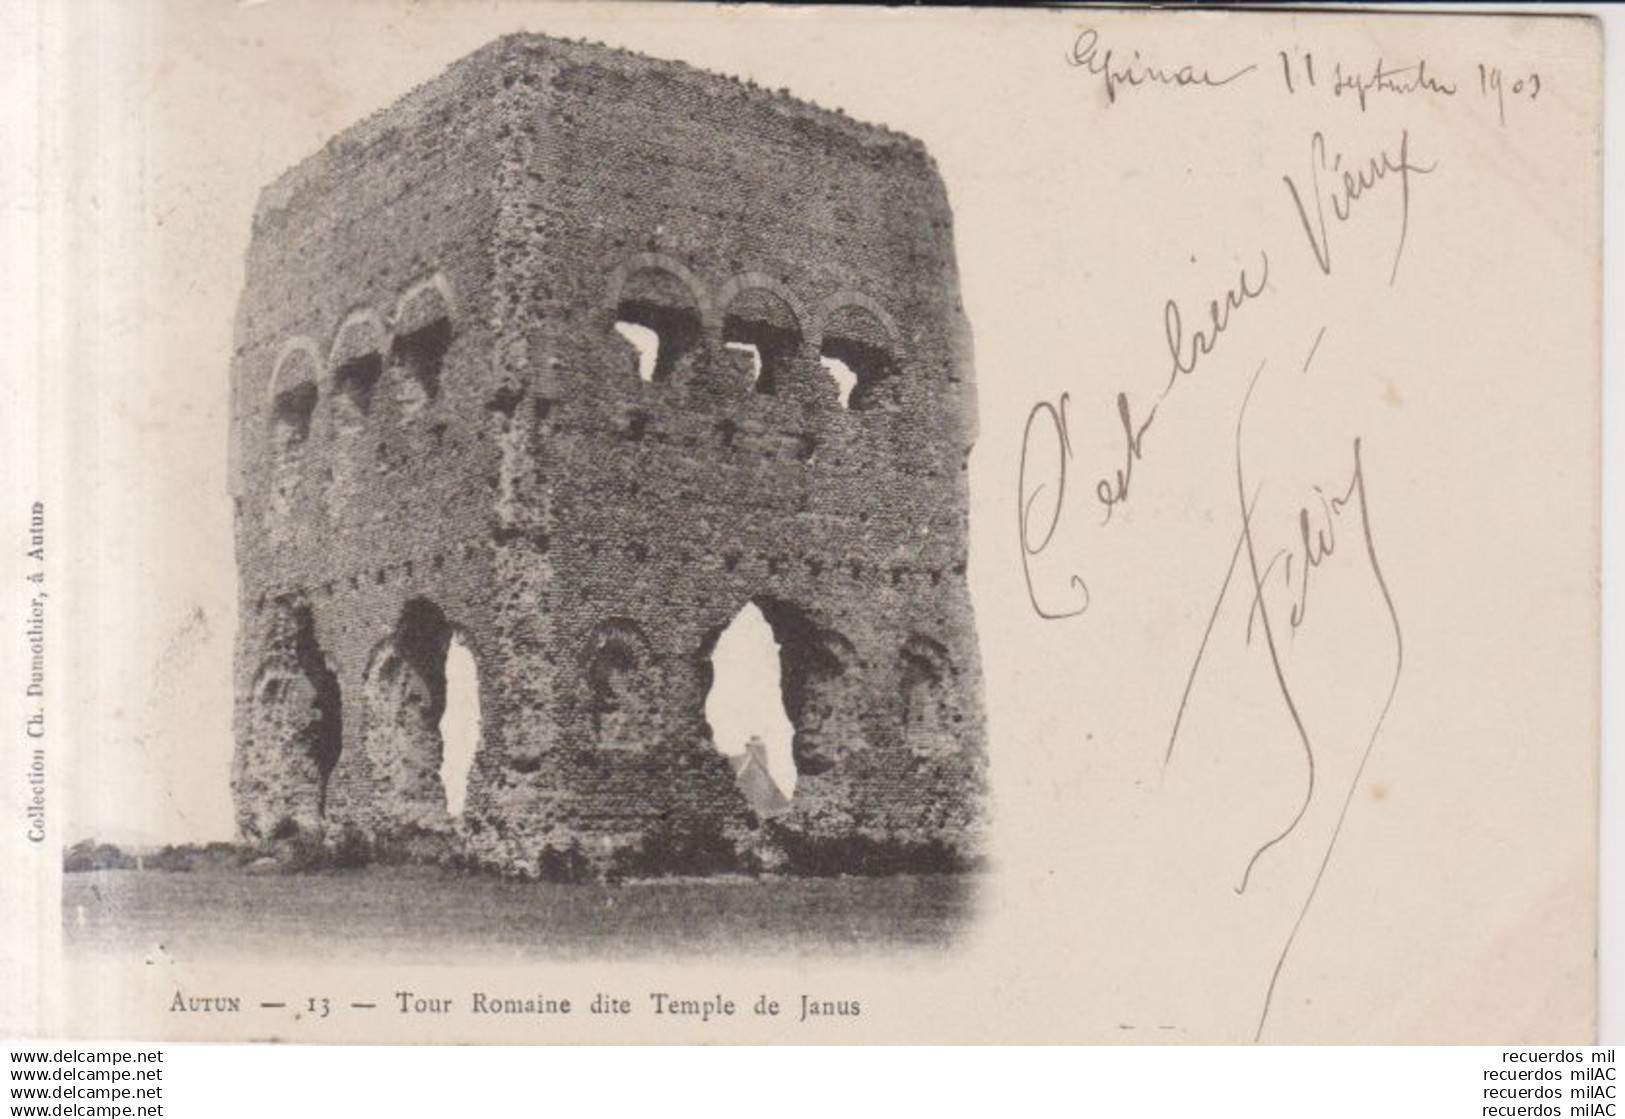 Epinac 11 septembre 1903
C'est bien Vieux
Collection Ch. Dumothier, à Autun
AUTUN — 13 — Tour Romaine dite Temple de Janus
www.delcampe.net
www.delcampe.net
www.delcampe.net
www.delcampe.net
recuerdos mil
recuerdos milAC
recuerdos milAC
recuerdos milAC